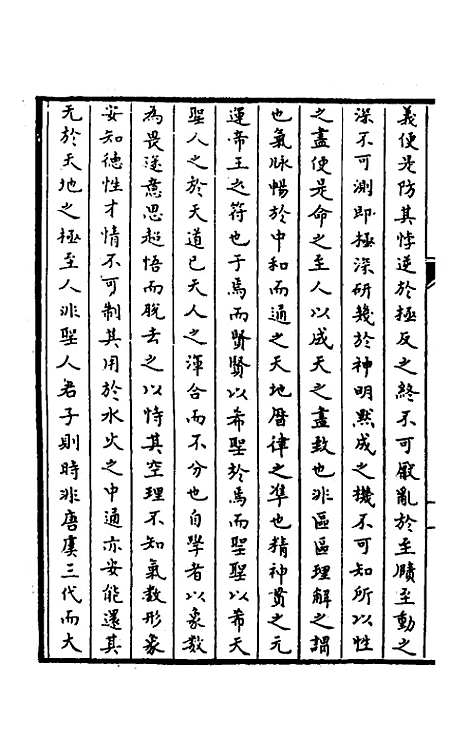 義便是防其悖逆於極反之終不可厭亂於至賾至動之
深不可測即極深研幾於神明黙成之機不可知所以性
之盡便是命之至人以成天之盡数也非區區理解之謂
也氣脉暢於中和而通之天地曆律之凖也精神貫之元
運帝王之符也于焉而賢賢以希聖於焉而聖聖以希天
聖人之於天道已天人之渾合而不分也自學者以象数
為畏遂意思超悟而脱去之以恃其空理不知氣数形象
安知徳性才情不可制其用於水火之中通亦安能還其
无於天地之極至人非聖人君子則時非唐虞三代而大